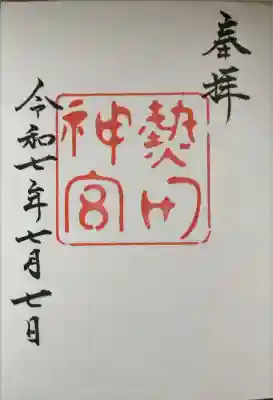 奉拝
熱田
神宮
令和七年七月七日